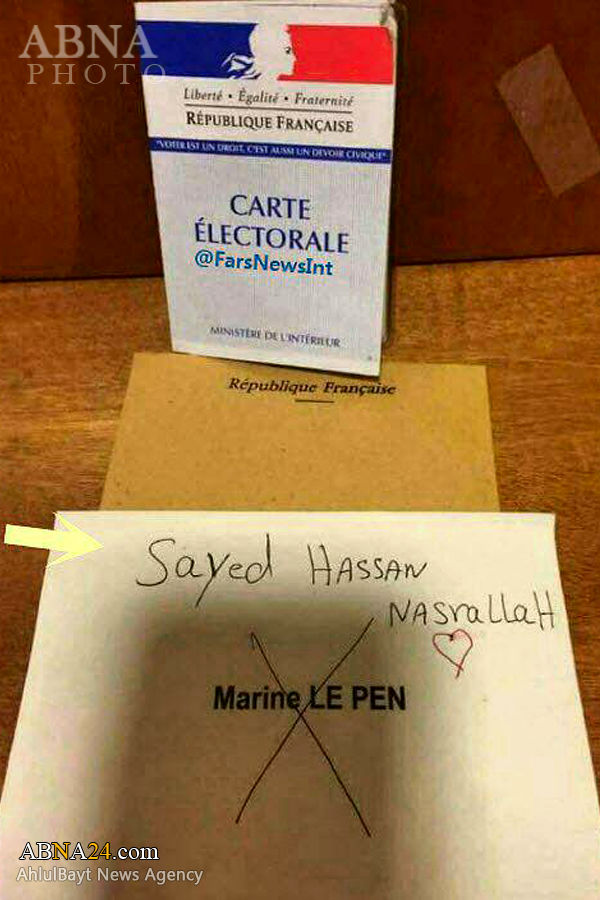 ABNA
PHOTO
Liberté • Égalité • Fraternité
RÉPUBLIQUE FRANÇAISE
"VOTER EST UN DROIT, C'EST AUSSI UN DEVOIR CIVIQUE"
CARTE
ÉLECTORALE
@FarsNewsInt
MINISTÈRE DE L'INTÉRIEUR
République Française
Sayed HASSAN
NASrallaH
Marine LE PEN
ABNA24.com
AhlulBayt News Agency